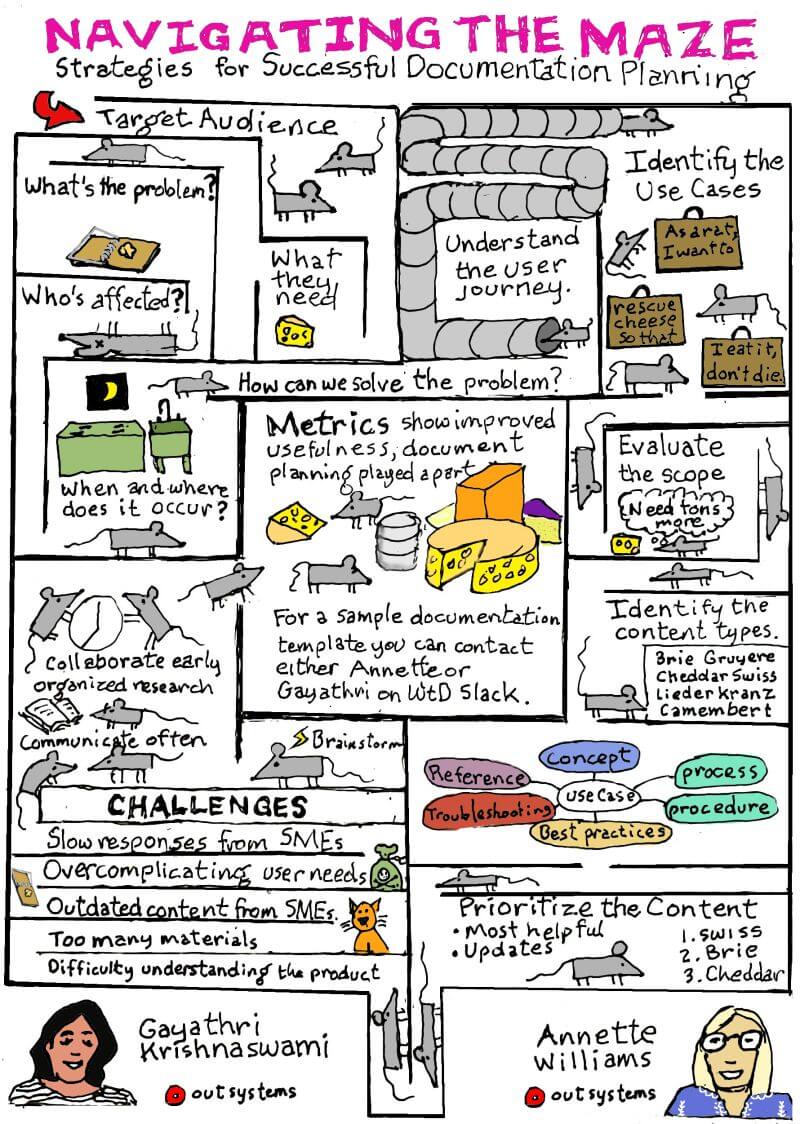 NAVIGATING THE MAZE
Strategies for Successful Documentation Planning
Target Audience
What's the problem?
Who's affected?
What
they
need
Understand
the user
journey.
Identify the
Use Cases
As a rat,
I want to
rescue
cheese
so that
I eat it,
don't die.
How can we solve the problem?
When and where
does it occur?
Metrics show improved
usefulness, document
planning played a part
For a sample documentation
template you can contact
either Annette or
Gayathri on WtD Slack.
Evaluate
the scope
Need tons
more
Identify the
content types.
Brie Gruyere
Cheddar Swiss
Liederkranz
Camembert
Collaborate early
organized research
Communicate often
Brainstorm
CHALLENGES
Slow responses from SMEs
Overcomplicating user needs
Outdated content from SMEs.
Too many materials
Difficulty understanding the product
Concept
Reference
process
use case
Troubleshooting
procedure
Best practices
Prioritize the Content
• Most helpful
• Updates
1. Swiss
2. Brie
3. Cheddar
Gayathri
Krishnaswami
outsystems
Annette
Williams
outsystems